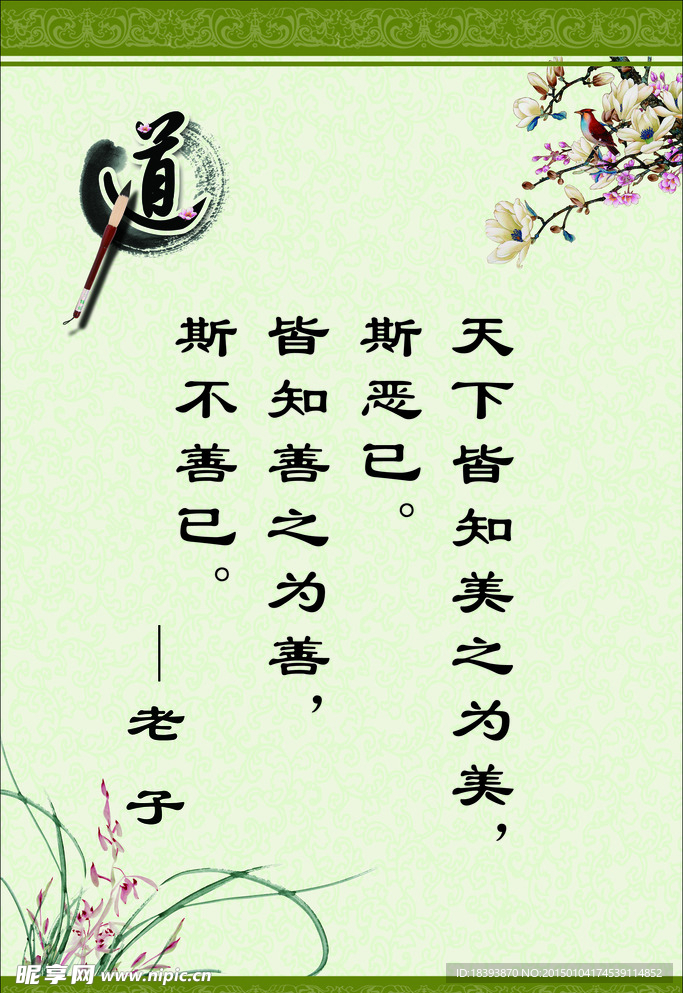 道
天下皆知美之为美，
斯恶已。
皆知善之为善，
斯不善已。
——老子
昵享网 www.nipic.cn
ID:18393870 NO:20150104174539114852